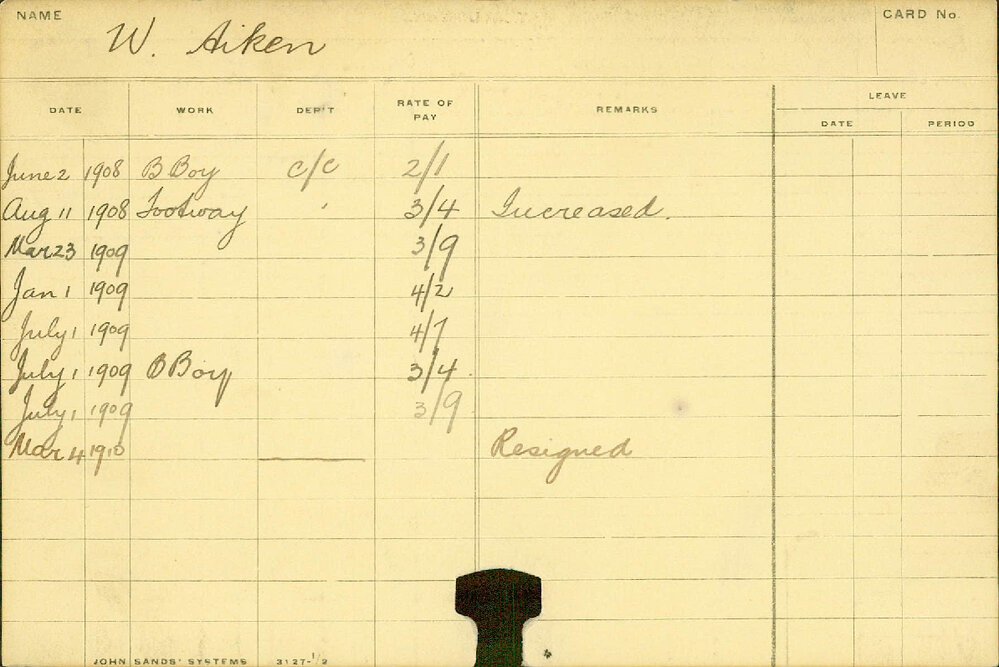 NAME W. Aiken CARD No.
DATE WORK DEP'T RATE OF PAY REMARKS LEAVE
DATE PERIOD
June 2 1908 B Boy c/c 2/1
Aug 11 1908 Footway " 3/4 Increased.
Mar 23 1909 3/9
Jan 1 1909 4/2
July 1 1909 4/7
July 1 1909 B Boy 3/4
July 1 1909 3/9
Mar 4 1910 Resigned
JOHN SANDS' SYSTEMS 3127-1/2